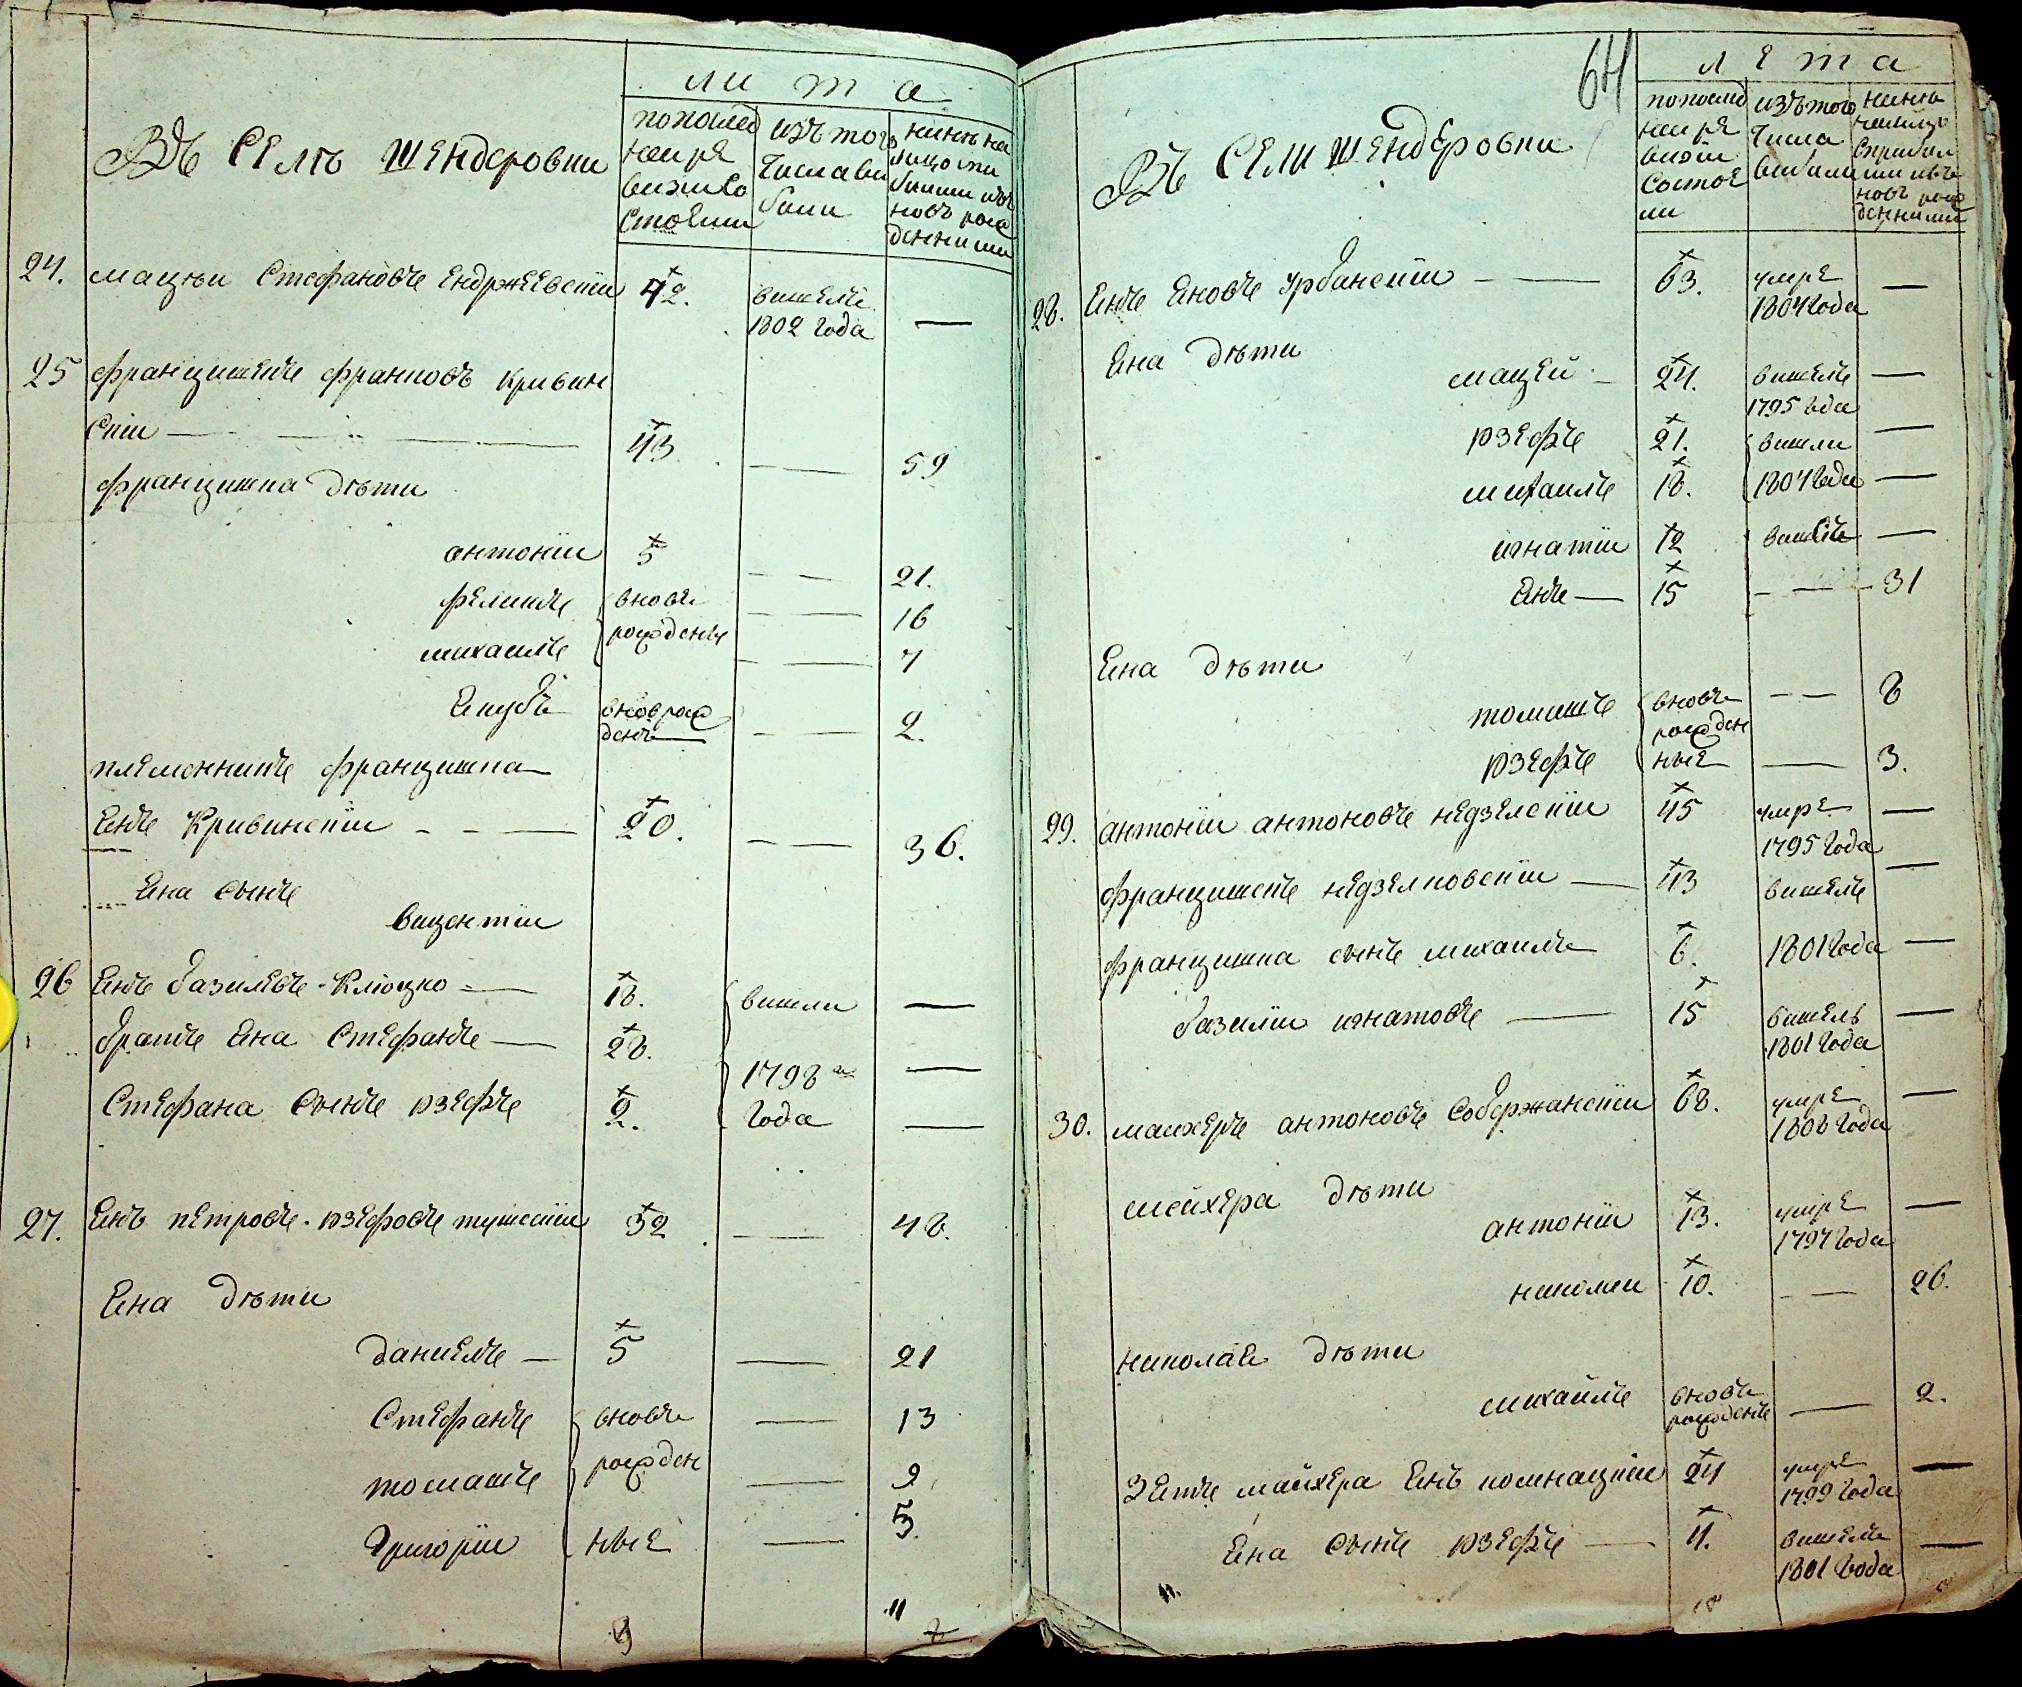 ли т а
Въ селѣ Шендеровки
попослед
ней ре
визии со
стоели
изъ того
числа ви
били
нинѣ на
лицо при
били изъ
новъ рож
денними
24. мацѣи Стефановъ Ендржеевскіи 42. вишелъ
1802 года —
25 францишекъ франковъ кривин
скіи — 43 — 59
францишка дѣти
антоніи 5 — 21.
феликъ вновъ — 16
рожденъ
михаилъ — 7
Екубъ вноврож
денъ — 2.
племенникъ францишка
Енъ Кривинскіи — 20. — 36.
Ена сынъ
вицентіи
26 Енъ базилевъ Клюцко — 18. вишли —
братъ Ена Стефанъ — 28. 1798 —
Стефана сынъ юзефъ 2. года —
27. Енъ петровъ юзефовъ тушскіи 32 — 48.
Ена дѣти
даниелъ — 5 — 21
Стефанъ вновъ — 13
томашъ рожден — 9
Григоріи ные — 5.
9
11
64
л е т а
Въ сели Шендеровки
попослед
ней ре
визіи
состое
ли
изъ того
числа
вибили
нинѣ
28. Енъ Еновъ урбанскіи — 63. умре
1804 года —
Ена дѣти
мацей — 24. вишелъ
1795 года —
юзефъ 21. вишли —
михаилъ 18. 1804 года —
игнатіи 12 вишелъ —
Енъ — 15 — 31
Ена дѣти
томашъ вновъ — 8
рожден
юзефъ ные — 3.
29. антоніи антоновъ недзелскіи 45 умре
1795 года —
францишекъ недзелковскіи — 43 вишелъ —
францишка сынъ михаилъ 6. 1801 года —
базиліи игнатовъ — 15 вишелъ
1801 года —
30. маихеръ антоновъ Соборжанскіи 68. умре
1808 года —
мейхера дѣти
антоніи 13. умре
1797 года —
николаи 10. — 26.
николае дѣти
михайлъ вновъ
рожденъ — 2.
Зеть маихера Енъ комнацкіи 24 умре
1799 года —
Ена сынъ юзефъ — 4. вишелъ
1801 года —